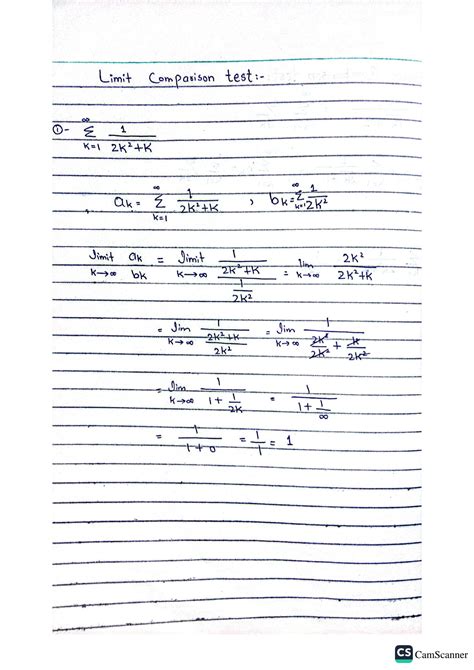 Limit Comparison test:-
①- ∞ Σ k=1 1/(2k²+k)
ak = ∞ Σ k=1 1/(2k²+k) , bk = ∞ Σ k=1 1/2k²
limit k→∞ ak/bk = limit k→∞ (1/(2k²+k))/(1/2k²) = lim k→∞ 2k²/(2k²+k)
= lim k→∞ 1/((2k²+k)/2k²) = lim k→∞ 1/(2k²/2k² + k/2k²)
= lim k→∞ 1/(1+1/2k) = 1/(1+1/∞)
= 1/(1+0) = 1/1 = 1
CS CamScanner